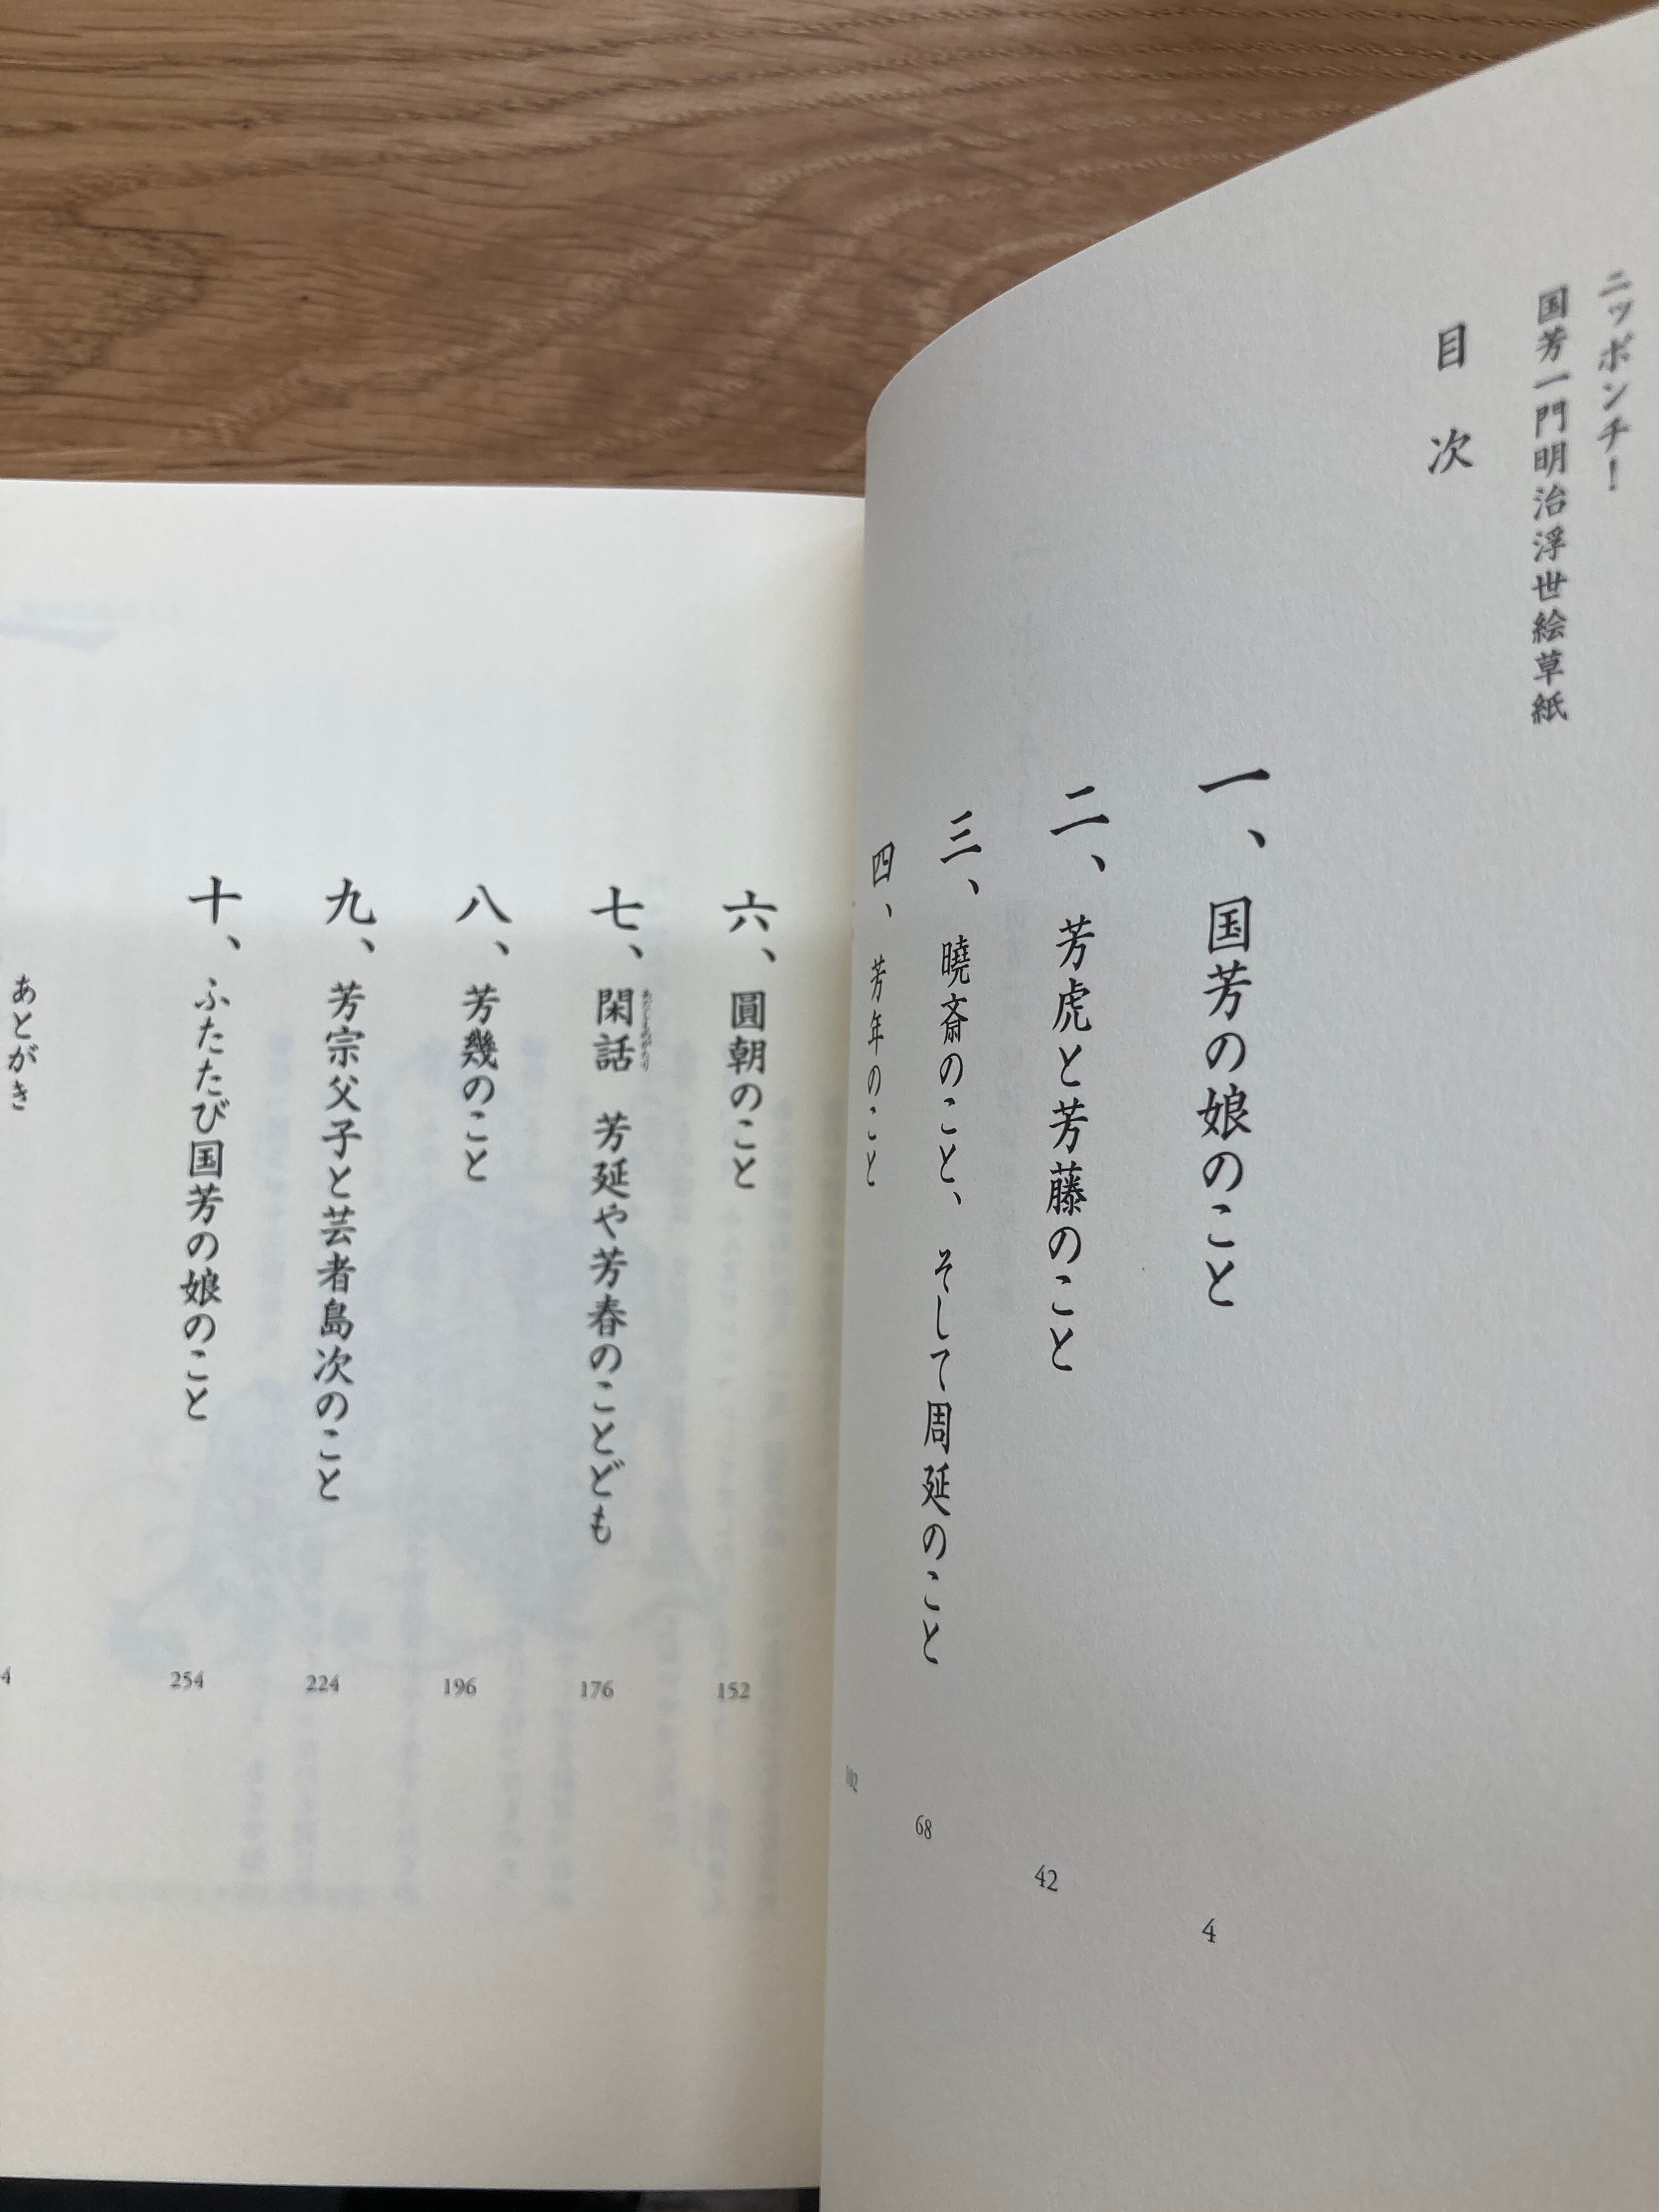 ニッポンチ！
国芳一門明治浮世絵草紙
目次
一、国芳の娘のこと 4
二、芳虎と芳藤のこと 42
三、暁斎のこと、そして周延のこと 68
四、芳年のこと 102
六、圓朝のこと 152
七、閑話 芳延や芳春のことども 176
八、芳幾のこと 196
九、芳宗父子と芸者島次のこと 224
十、ふたたび国芳の娘のこと 254
あとがき